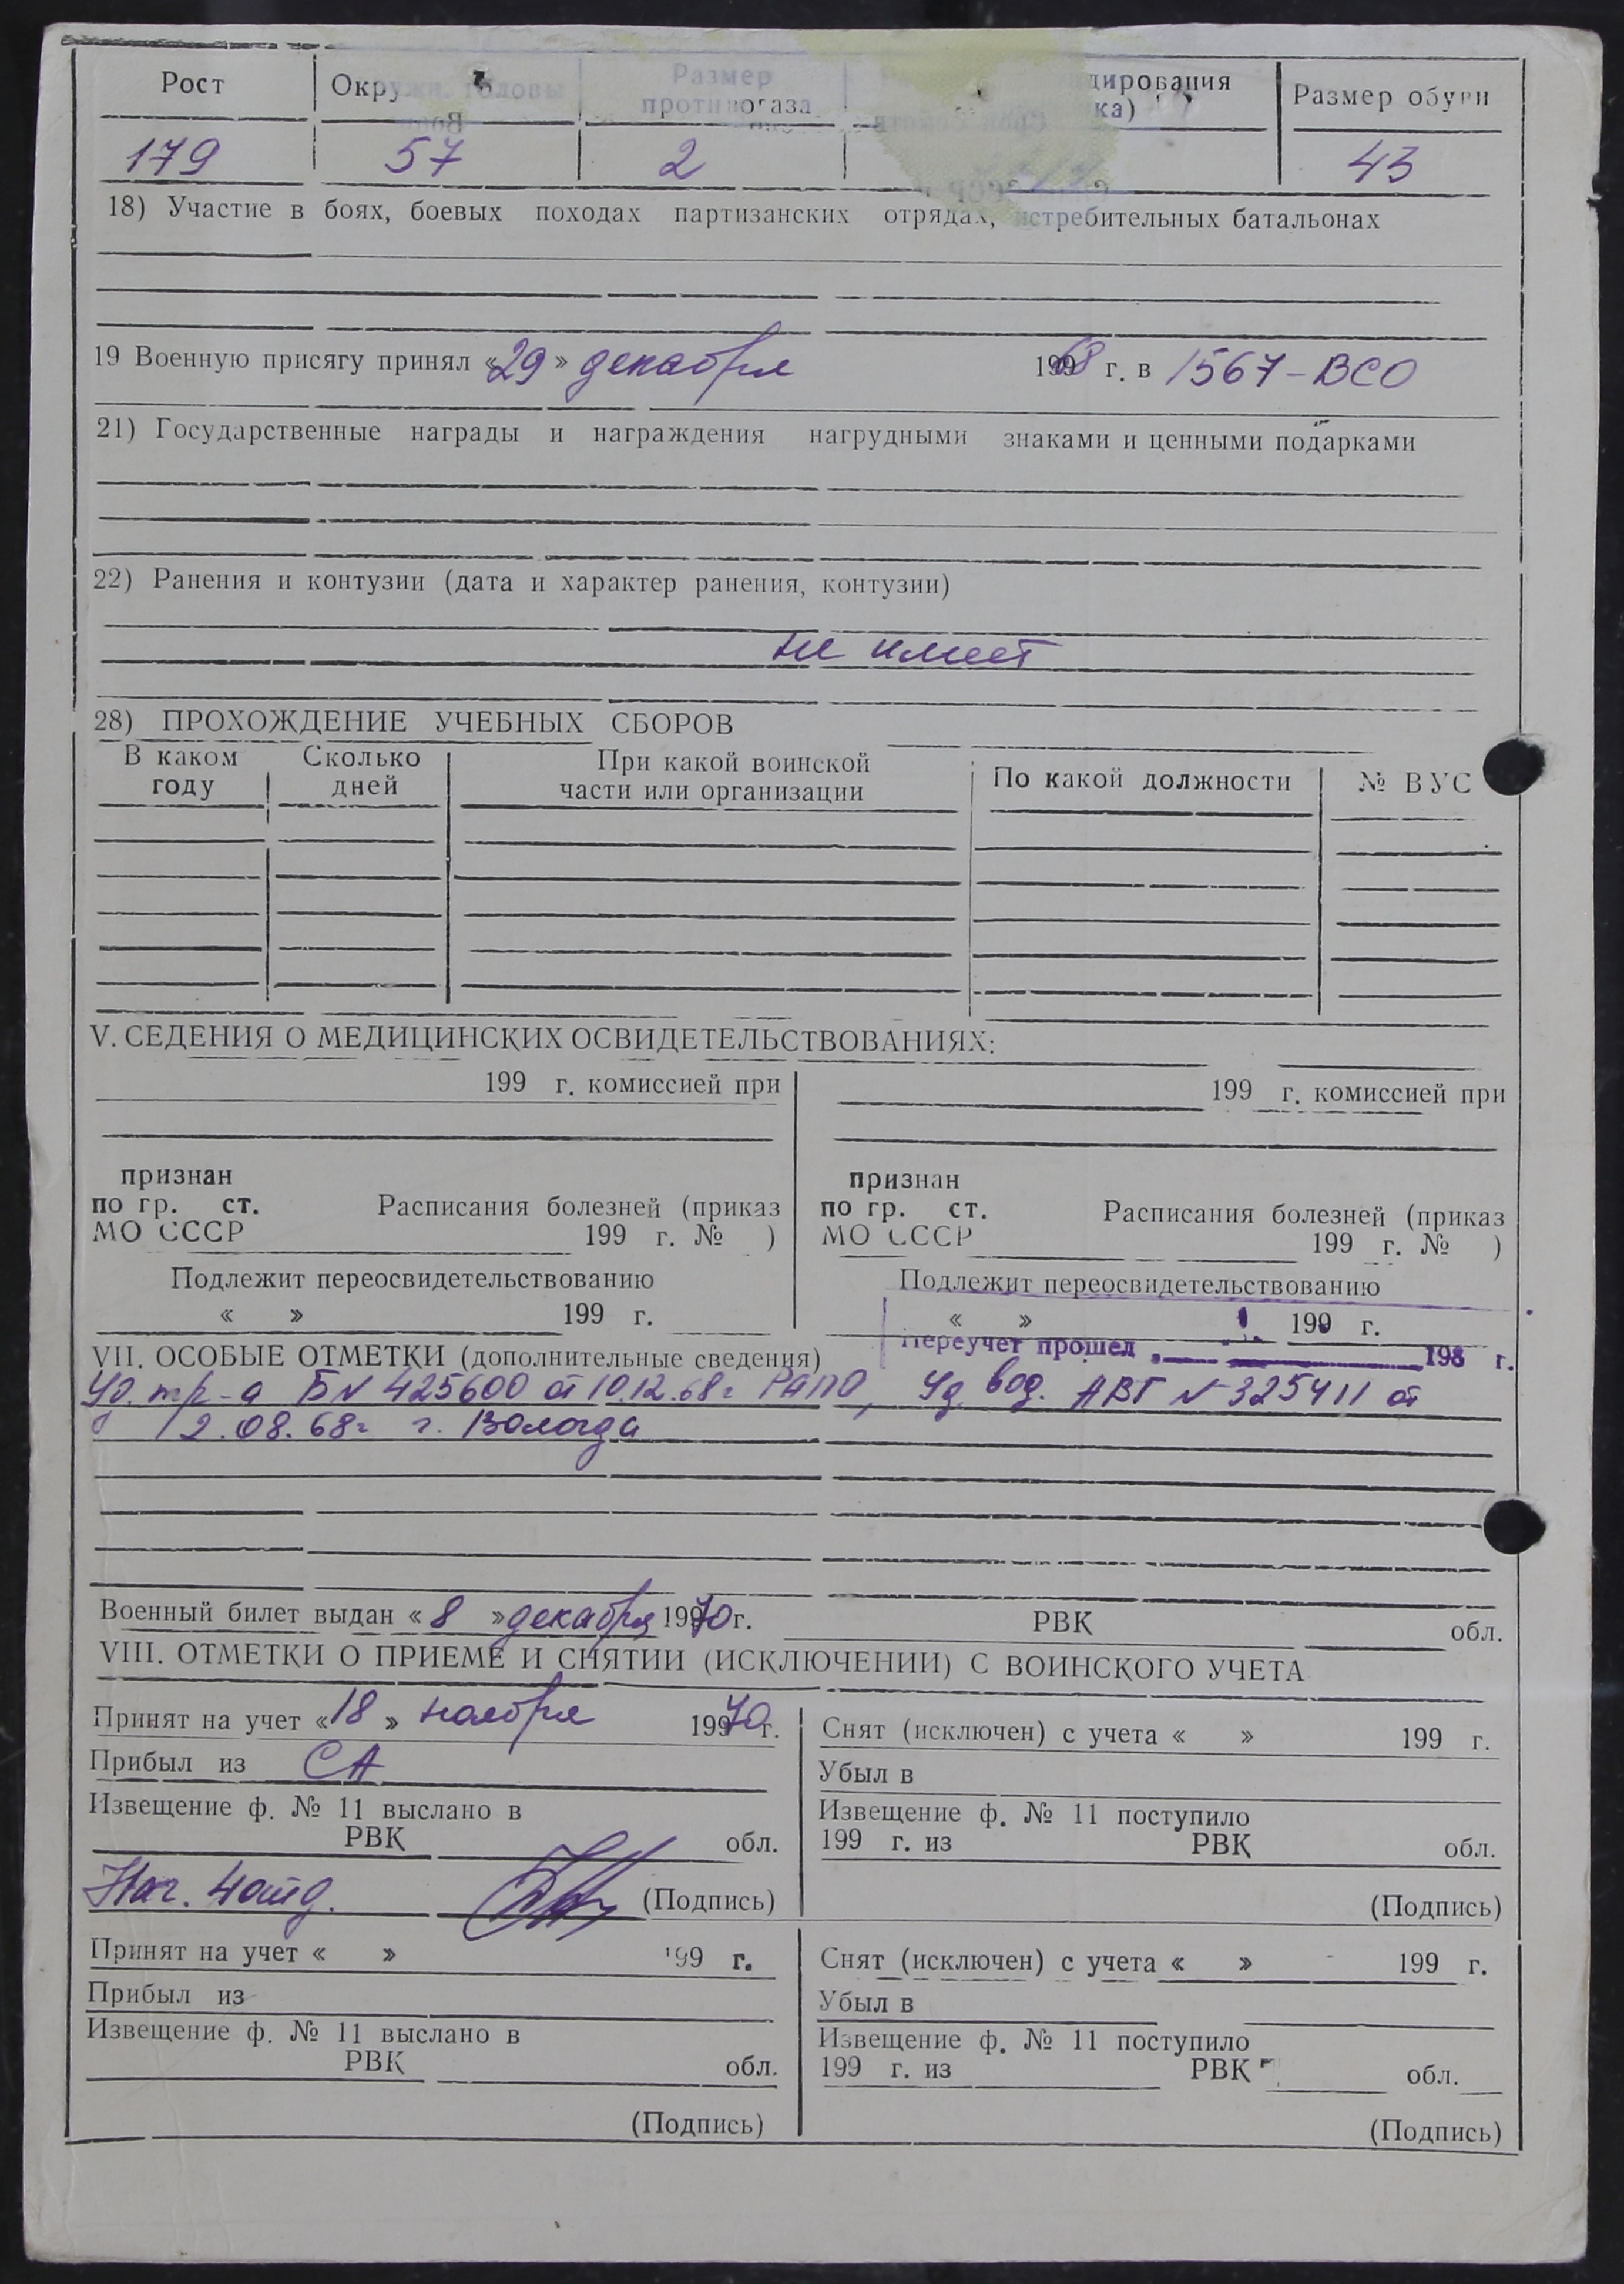 Рост Окружн. головы Размер дирования Размер обуви
противогаза ка)
179 57 2 43
18) Участие в боях, боевых походах партизанских отрядах, истребительных батальонах
19 Военную присягу принял «29» декабря 1968 г. в 1567-ВСО
21) Государственные награды и награждения нагрудными знаками и ценными подарками
22) Ранения и контузии (дата и характер ранения, контузии)
не имеет
28) ПРОХОЖДЕНИЕ УЧЕБНЫХ СБОРОВ
В каком Сколько При какой воинской По какой должности № ВУС
году дней части или организации
V. СЕДЕНИЯ О МЕДИЦИНСКИХ ОСВИДЕТЕЛЬСТВОВАНИЯХ:
199 г. комиссией при 199 г. комиссией при
признан признан
по гр. ст. Расписания болезней (приказ по гр. ст. Расписания болезней (приказ
МО СССР 199 г. № ) МО СССР 199 г. № )
Подлежит переосвидетельствованию Подлежит переосвидетельствованию
« » 199 г. « » 199 г.
Переучет прошел 198 г.
VII. ОСОБЫЕ ОТМЕТКИ (дополнительные сведения)
Уд. тр-а БN 425600 от 10.12.68г РАПО, Уд. вод. АВГ N 325411 от
12.08.68г г. Вологда
Военный билет выдан «8» декабря 1970г. РВК обл.
VIII. ОТМЕТКИ О ПРИЕМЕ И СНЯТИИ (ИСКЛЮЧЕНИИ) С ВОИНСКОГО УЧЕТА
Принят на учет «18» ноября 1970г. Снят (исключен) с учета « » 199 г.
Прибыл из СА Убыл в
Извещение ф. № 11 выслано в Извещение ф. № 11 поступило
РВК обл. 199 г. из РВК обл.
Нач. 4 отд. (Подпись) (Подпись)
Принят на учет « » 199 г. Снят (исключен) с учета « » 199 г.
Прибыл из Убыл в
Извещение ф. № 11 выслано в Извещение ф. № 11 поступило
РВК обл. 199 г. из РВК обл.
(Подпись) (Подпись)